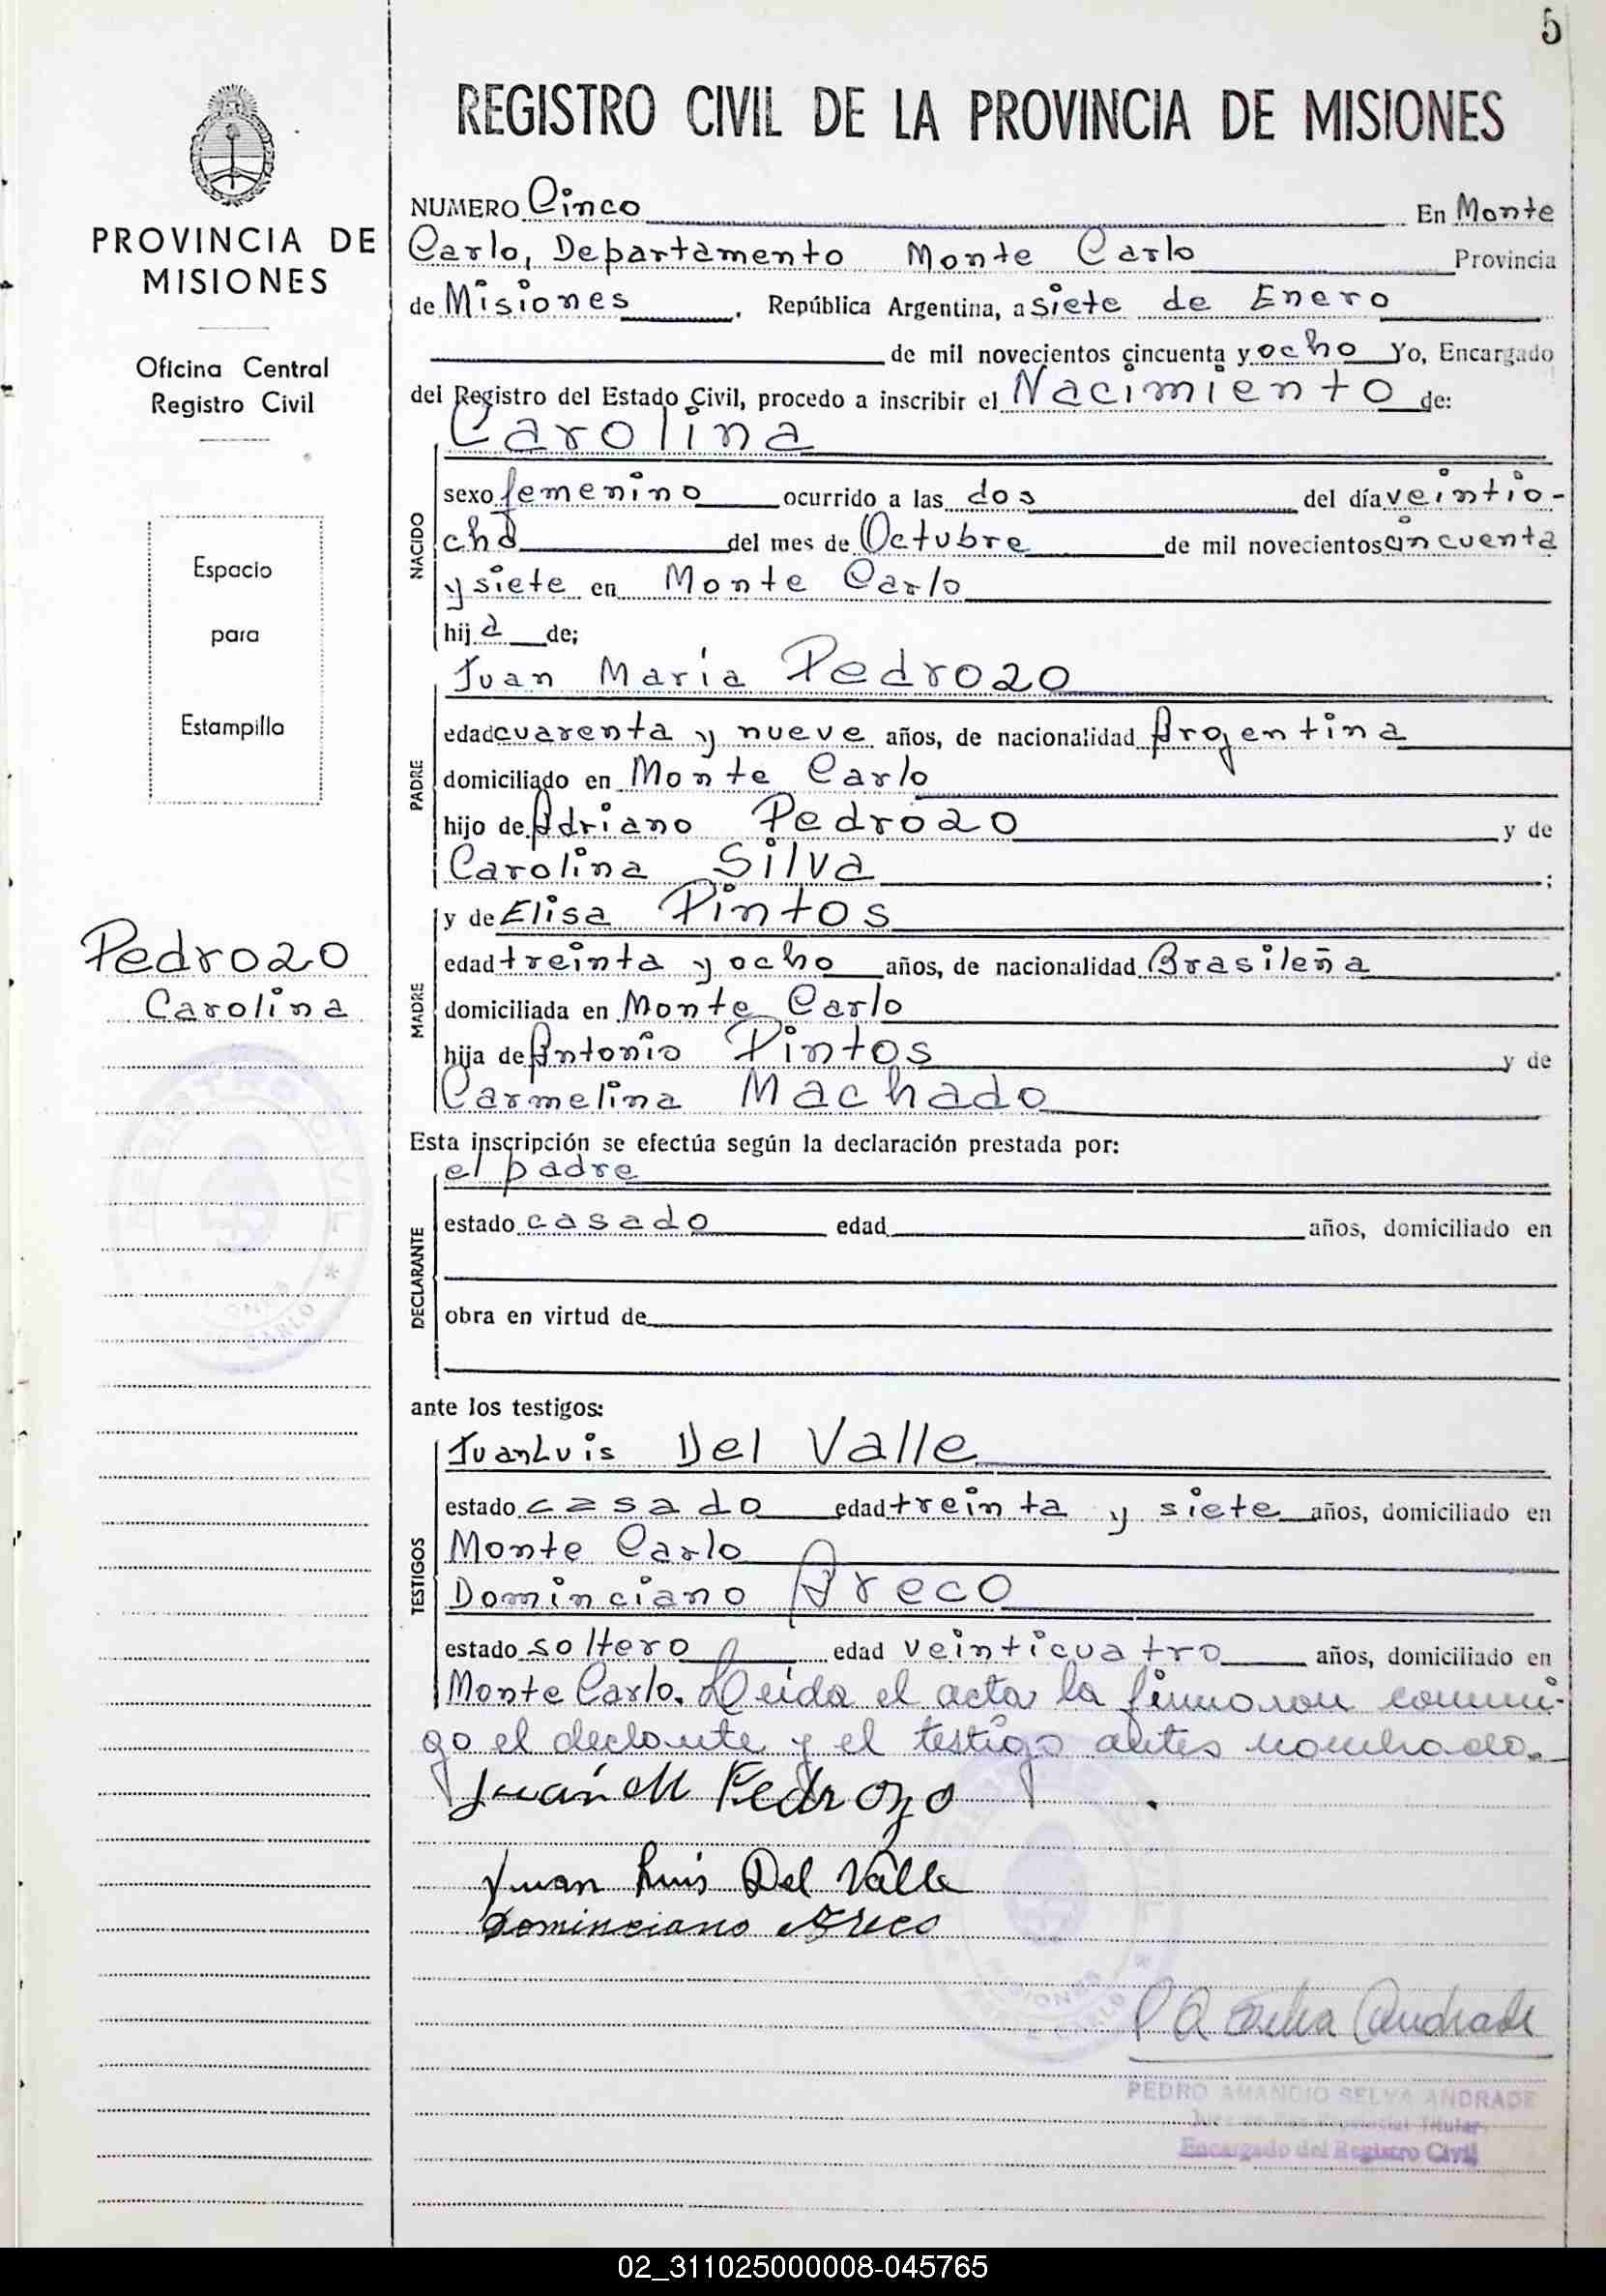 5
REGISTRO CIVIL DE LA PROVINCIA DE MISIONES
PROVINCIA DE
MISIONES
Oficina Central
Registro Civil
Espacio
para
Estampilla
Pedrozo
Carolina
NUMERO Cinco En Monte
Carlo, Departamento Monte Carlo Provincia
de Misiones, República Argentina, a siete de Enero
de mil novecientos cincuenta y ocho Yo, Encargado
del Registro del Estado Civil, procedo a inscribir el Nacimiento de:
Carolina
NACIDO
sexo femenino ocurrido a las dos del día veintio-
cho del mes de Octubre de mil novecientos cincuenta
y siete en Monte Carlo
hij a de;
Juan María Pedrozo
PADRE
edad cuarenta y nueve años, de nacionalidad Argentina
domiciliado en Monte Carlo
hijo de Adriano Pedrozo y de
Carolina Silva ;
y de Elisa Pintos
MADRE
edad treinta y ocho años, de nacionalidad Brasileña
domiciliada en Monte Carlo
hija de Antonio Pintos y de
Carmelina Machado
Esta inscripción se efectúa según la declaración prestada por:
el padre
DECLARANTE
estado casado edad años, domiciliado en
obra en virtud de
ante los testigos:
Juan Luis Del Valle
TESTIGOS
estado casado edad treinta y siete años, domiciliado en
Monte Carlo
Dominciano Areco
estado soltero edad veinticuatro años, domiciliado en
Monte Carlo. Leida el acta la firmaron conmi-
go el declarante y el testigo antes nombrado.
Juan M Pedrozo
Juan Luis Del Valle
Dominciano Areco
PEDRO AMANCIO SELVA ANDRADE
Encargado del Registro Civil
02_311025000008-045765